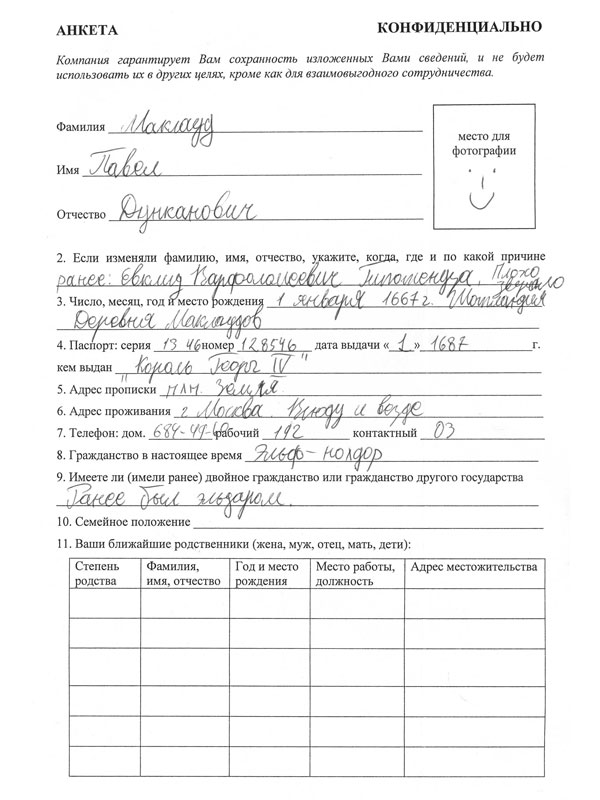 АНКЕТА КОНФИДЕНЦИАЛЬНО
Компания гарантирует Вам сохранность изложенных Вами сведений, и не будет
использовать их в других целях, кроме как для взаимовыгодного сотрудничества.
Фамилия Маклауд
Имя Павел
Отчество Дунканович
место для
фотографии
2. Если изменяли фамилию, имя, отчество, укажите, когда, где и по какой причине
ранее: Евклид Варфоломеевич Гипотенуза. Плохо
звучало
3. Число, месяц, год и место рождения 1 января 1667 г. Шотландия
Деревня Маклаудов
4. Паспорт: серия 13 46 номер 128546 дата выдачи « 1 » 1687 г.
кем выдан "Король Георг IV"
5. Адрес прописки пл. Земля
6. Адрес проживания г Москва. Всюду и везде
7. Телефон: дом. 684-49- рабочий 192 контактный 03
8. Гражданство в настоящее время Эльф-нолдор
9. Имеете ли (имели ранее) двойное гражданство или гражданство другого государства
Ранее был эльдаром.
10. Семейное положение
11. Ваши ближайшие родственники (жена, муж, отец, мать, дети):
Степень родства
Фамилия, имя, отчество
Год и место рождения
Место работы, должность
Адрес местожительства